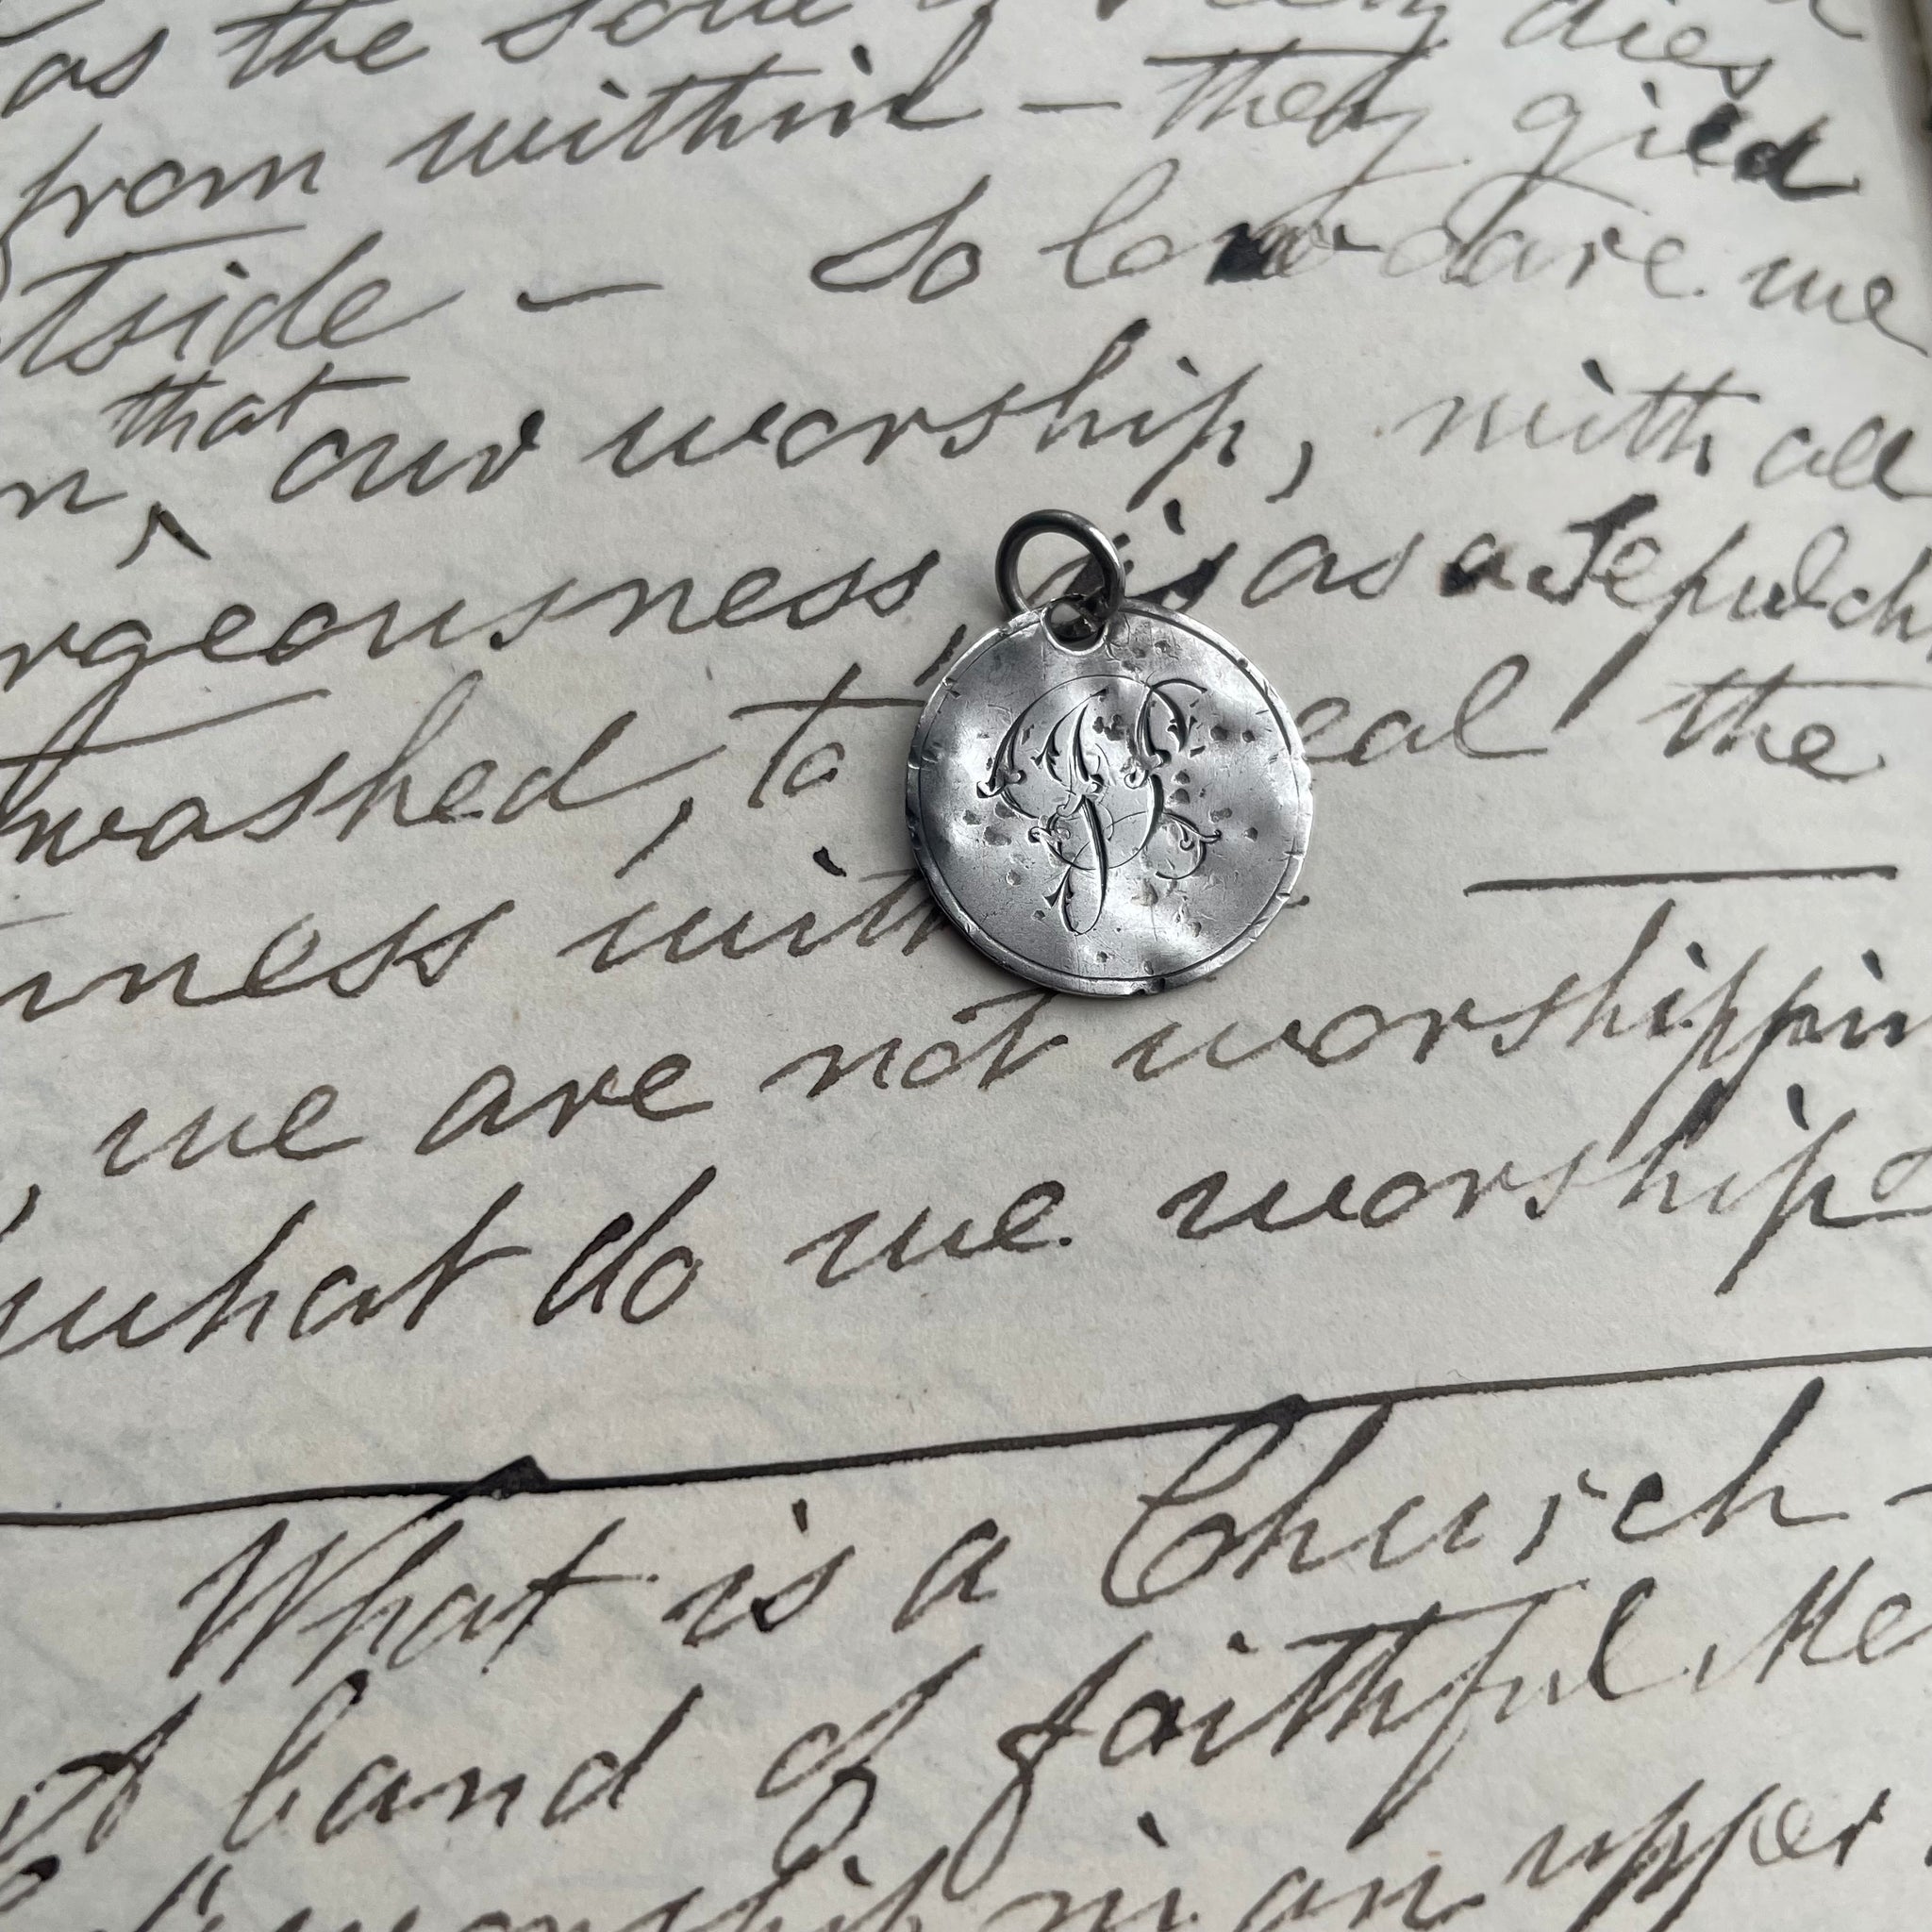 as the soul dies
from within - they gild
tside - So low dare we
that
n, our worship, with all
rgeousness, is as a Sepulch
washed, to eal the
ness with
, we are not worshippin
what do we worship
What is a Church -
band of faithful Me
worship in an upper